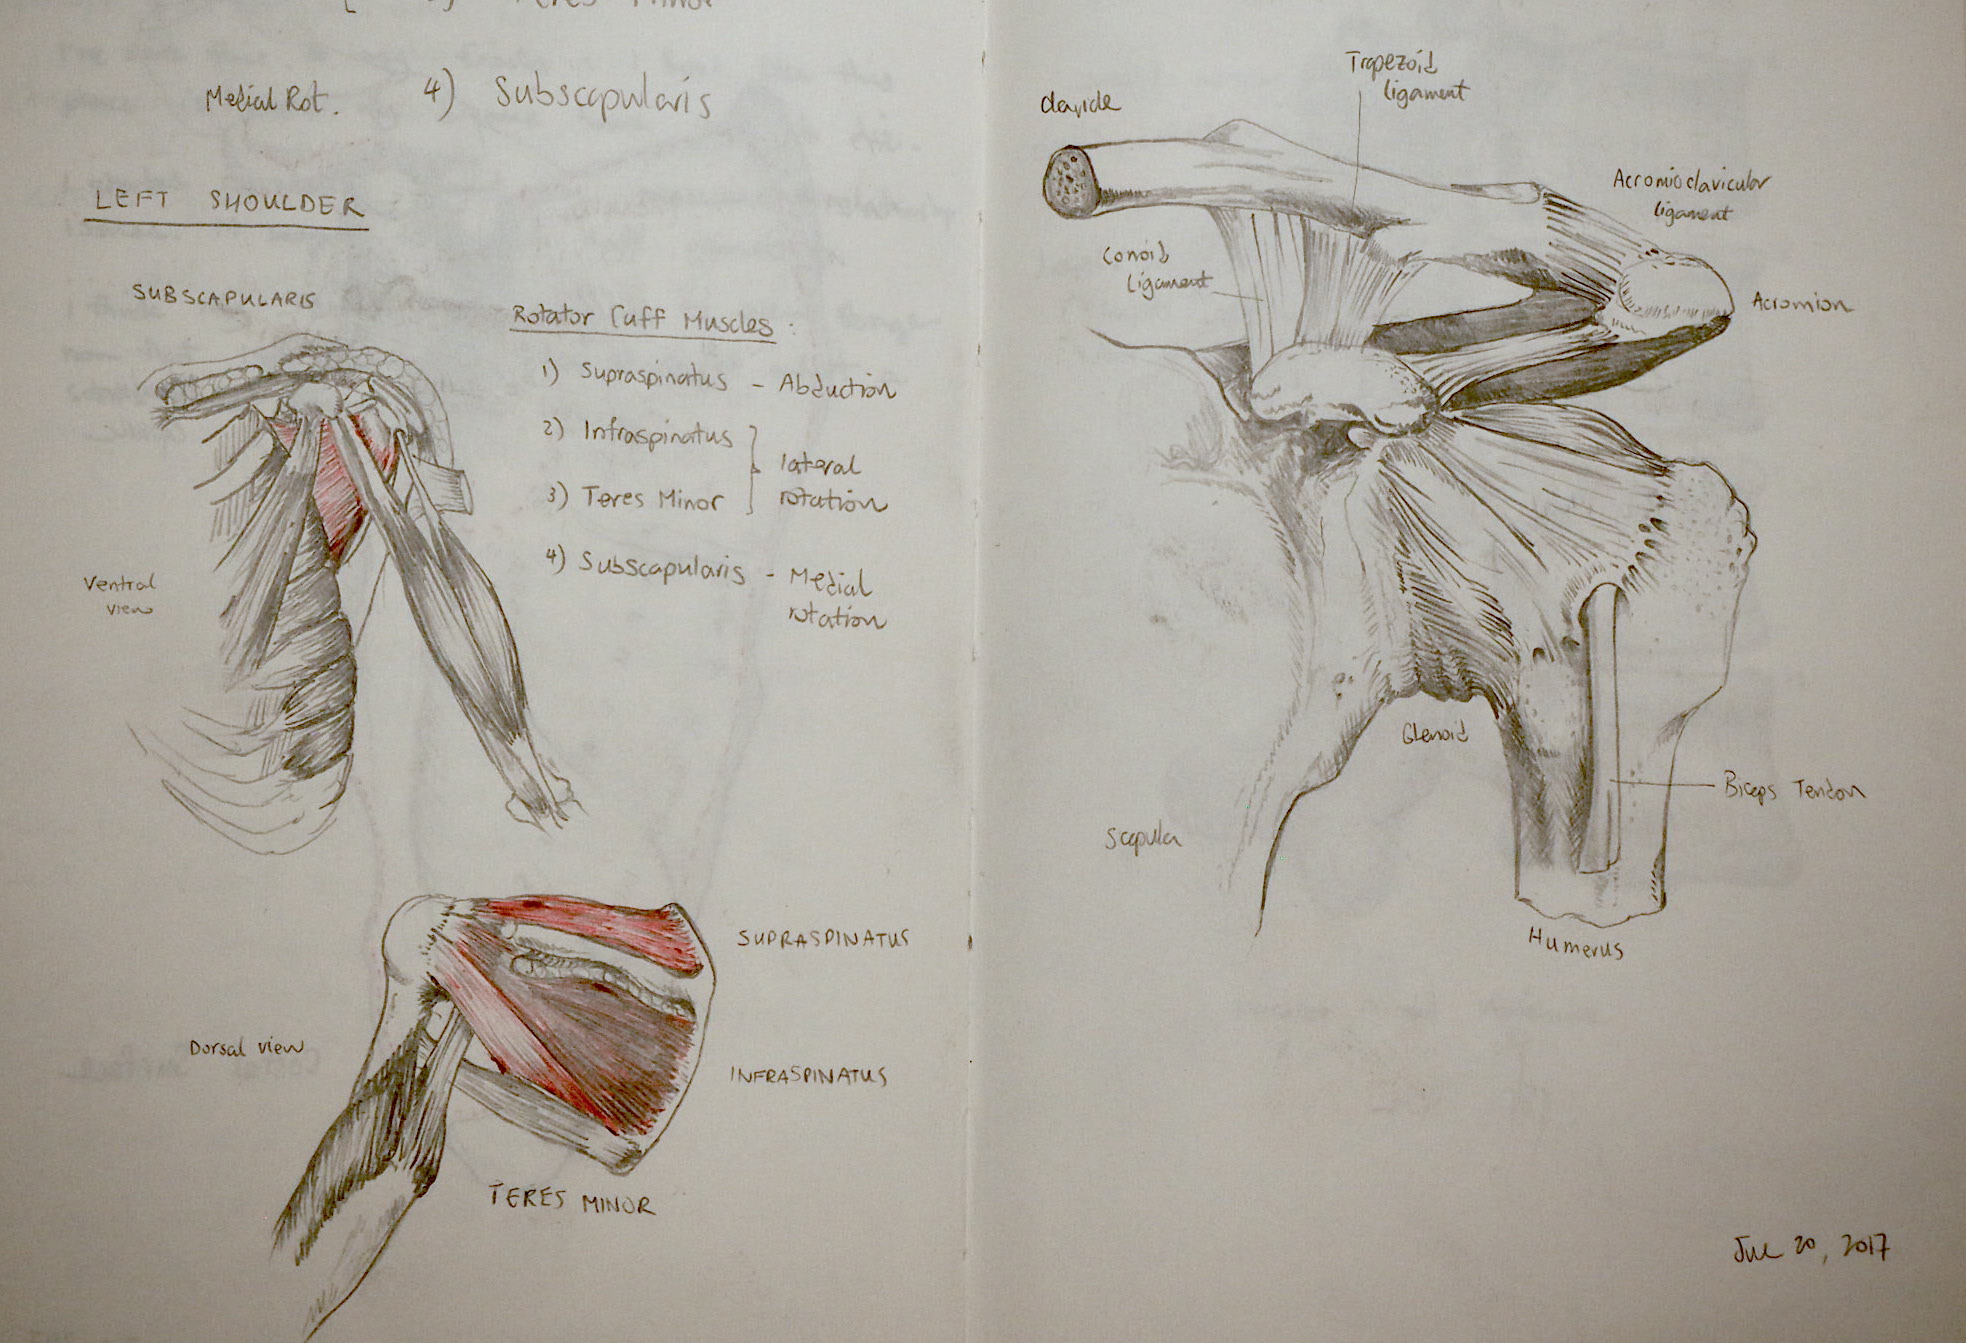 Teres Minor
Medial Rot. 4) Subscapularis
LEFT SHOULDER
SUBSCAPULARIS
Rotator Cuff Muscles :
1) Supraspinatus - Abduction
2) Infraspinatus
3) Teres Minor
lateral
rotation
4) Subscapularis - Medial
rotation
Ventral
view
SUPRASPINATUS
Dorsal view
INFRASPINATUS
TERES MINOR
Clavicle
Trapezoid
ligament
Acromioclavicular
ligament
Conoid
Ligament
Acromion
Glenoid
Biceps Tendon
Scapula
Humerus
20, 2017